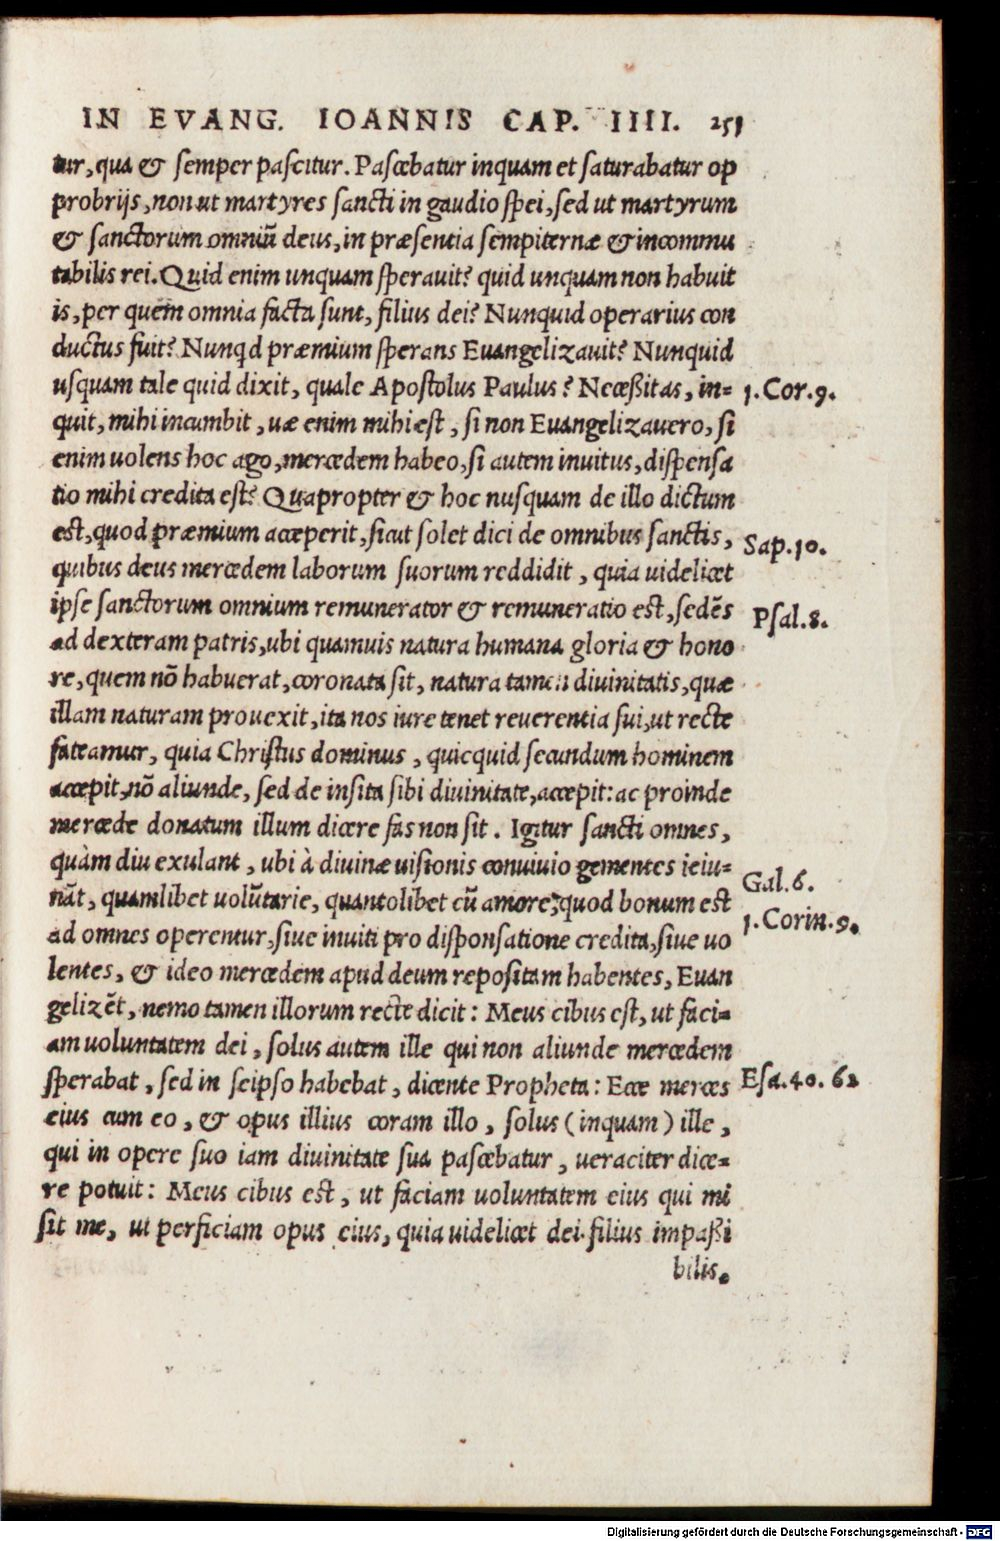 IN EVANG. IOANNIS CAP. IIII. 251
tur, qua & semper pascitur. Pascebatur inquam et saturabatur op
probrijs, non ut martyres sancti in gaudio spei, sed ut martyrum
& sanctorum omniũ deus, in præsentia sempiternæ & incommu
tabilis rei. Quid enim unquam sperauit? quid unquam non habuit
is, per quem omnia facta sunt, filius dei? Nunquid operarius con
ductus fuit? Nunqd præmium sperans Euangelizauit? Nunquid
usquam tale quid dixit, quale Apostolus Paulus? Necessitas, in=
1. Cor. 9.
quit, mihi incumbit, uæ enim mihi est, si non Euangelizauero, si
enim uolens hoc ago, mercedem habeo, si autem inuitus, dispensa
tio mihi credita est? Quapropter & hoc nusquam de illo dictum
est, quod præmium acceperit, sicut solet dici de omnibus sanctis,
Sap. 10.
quibus deus mercedem laborum suorum reddidit, quia uidelicet
ipse sanctorum omnium remunerator & remuneratio est, sedẽs
Psal. 8.
ad dexteram patris, ubi quamuis natura humana gloria & hono
re, quem nõ habuerat, coronata sit, natura tamen diuinitatis, quæ
illam naturam prouexit, ita nos iure tenet reuerentia sui, ut recte
fateamur, quia Christus dominus, quicquid secundum hominem
accepit, nõ aliunde, sed de insita sibi diuinitate, accepit: ac proinde
mercede donatum illum dicere fas non sit. Igitur sancti omnes,
quàm diu exulant, ubi à diuinæ uisionis conuiuio gementes ieiu=
Gal. 6.
nãt, quamlibet uolũtarie, quantolibet cũ amore, quod bonum est
1. Corin. 9.
ad omnes operentur, siue inuiti pro disponsatione credita, siue uo
lentes, & ideo mercedem apud deum repositam habentes, Euan
gelizẽt, nemo tamen illorum recte dicit: Meus cibus est, ut faci=
am uoluntatem dei, solus autem ille qui non aliunde mercedem
sperabat, sed in seipso habebat, dicente Propheta: Ecce merces
Esa. 40. 62
eius cum eo, & opus illius coram illo, solus (inquam) ille,
qui in opere suo iam diuinitate sua pascebatur, ueraciter dice=
re potuit: Meus cibus est, ut faciam uoluntatem eius qui mi
sit me, ut perficiam opus eius, quia uidelicet dei filius impassi
bilis.
Digitalisierung gefördert durch die Deutsche Forschungsgemeinschaft - DFG